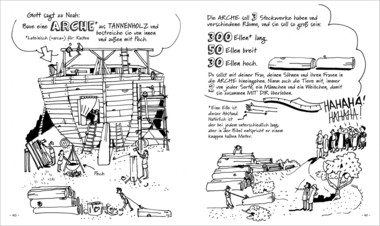 Gott sagt zu Noah:
Baue eine ARCHE* aus TANNENHOLZ und
*Lateinisch (»arca«) für Kasten
bestreiche sie von innen
und außen mit Pech.
Pech
Die ARCHE soll 3 Stockwerke haben und
verschiedene Räume, und sie soll so groß sein:
300 Ellen* lang,
50 Ellen breit
30 Ellen hoch.
Du sollst mit deiner Frau, deinen Söhnen und ihren Frauen in
die ARCHE hineingehen. Nimm auch die Tiere mit, immer
von jeder Sorte, ein Männchen und ein Weibchen, damit
sie zusammen MIT DIR überleben.
*Eine Elle ist
dieser Abstand.
Natürlich ist
der bei jedem unterschiedlich lang,
aber in der Bibel entspricht er einem
knappen halben Meter.
HAHAHA!
HAHAHA!